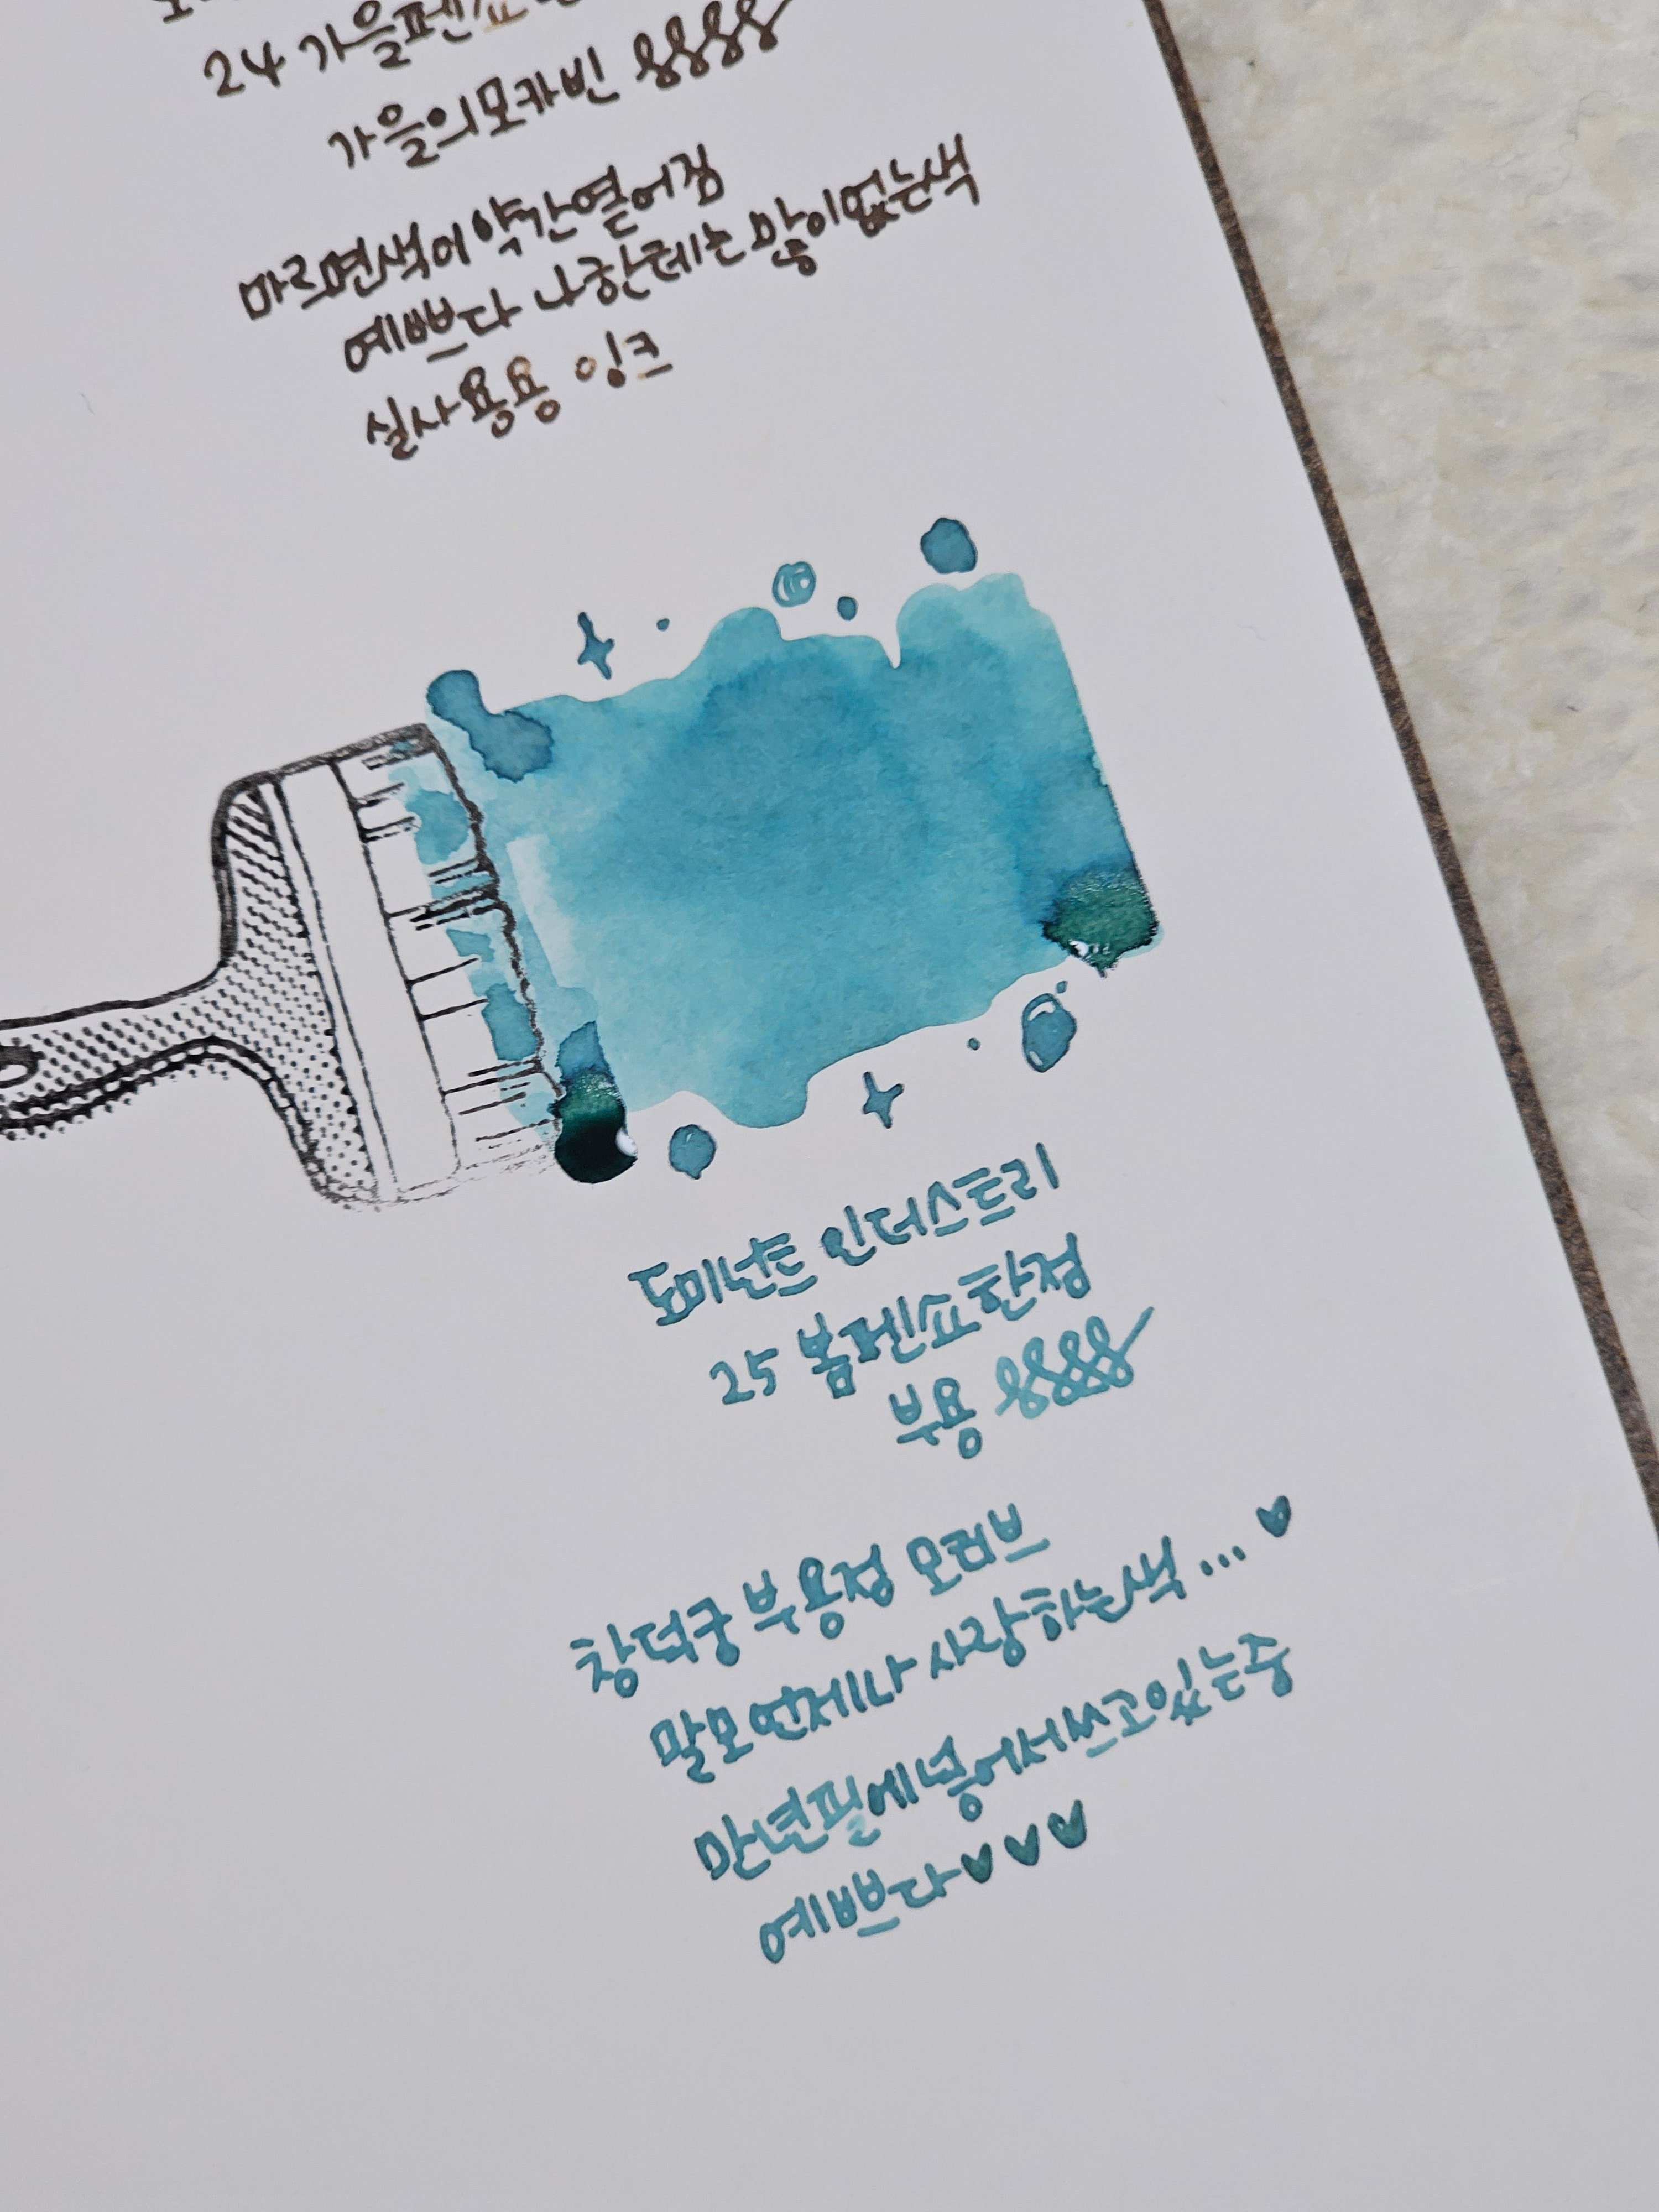 24 가을펜쇼
가을의모카빈
마르면색이 약간옅어짐
예쁘다 나한테는 많이없는색
실사용용 잉크
도미넌트 인더스트리
25 봄펜쇼한정
부용
창덕궁 부용정 모티브
말모 언제나 사랑하는색 ... ♥
만년필에넣어서쓰고있는중
예쁘다♥♥♥